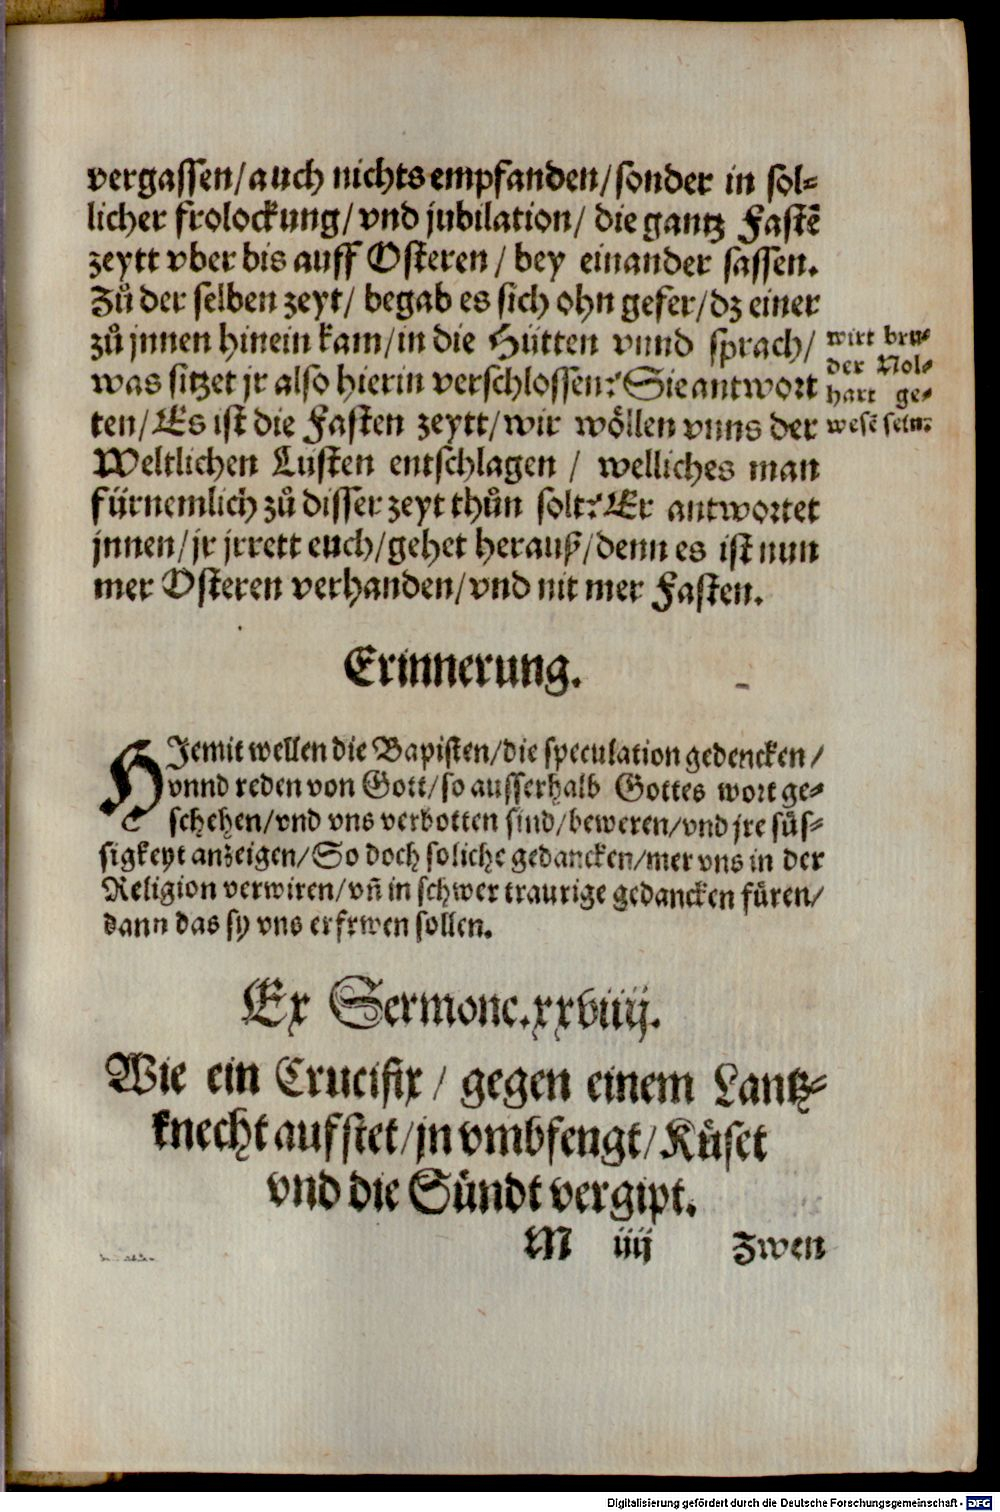 vergassen/auch nichts empfanden/sonder in sol⸗
licher frolockung/vnd jubilation/ die gantz Fastē
zeytt vber bis auff Osteren / bey einander sassen.
Zů der selben zeyt/ begab es sich ohn gefer/dz einer
zů jnnen hinein kam/in die Hütten vnnd sprach/
was sitzet jr also hierin verschlossen? Sie antwort
ten/Es ist die Fasten zeytt/wir wöllen vnns der
Weltlichen Lusten entschlagen / welliches man
fürnemlich zů disser zeyt thůn solt? Er antwortet
jnnen/jr jrrett euch/gehet herauß/denn es ist nun
mer Osteren verhanden/vnd nit mer Fasten.
wirt bru⸗
der Nol⸗
hart ge⸗
wesē sein.
Erinnerung.
HJemit wellen die Bapisten/die speculation gedencken/
vnnd reden von Gott/so ausserhalb Gottes wort ge⸗
schehen/vnd vns verbotten sind/beweren/vnd jre süs⸗
sigkeyt anzeigen/So doch soliche gedancken/mer vns in der
Religion verwiren/vñ in schwer traurige gedancken füren/
dann das sy vns erfrwen sollen.
Ex Sermone.xxviiij.
Wie ein Crucifix / gegen einem Lantz⸗
knecht aufstet/jn vmbfengt/Küset
vnd die Sündt vergipt.
M iiij Zwen
Digitalisierung gefördert durch die Deutsche Forschungsgemeinschaft - DFG